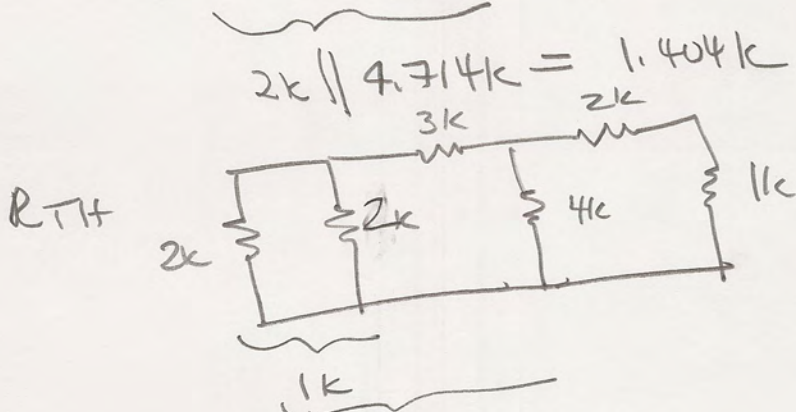 2k || 4.714k = 1.404k
3k
2k
RTH
2k
2k
4k
1k
1k